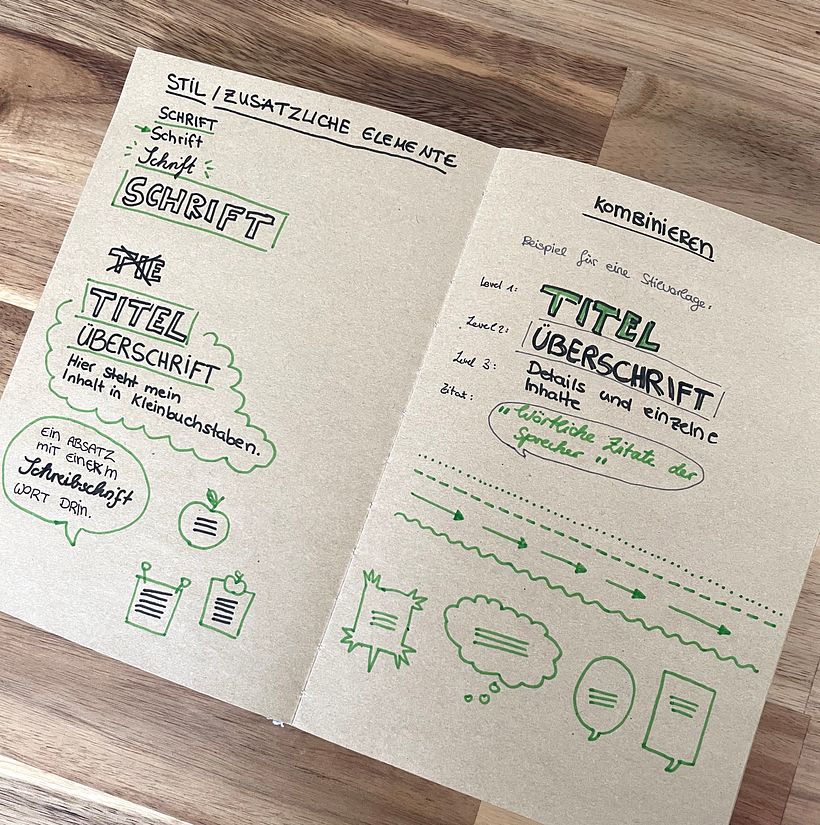 STIL / ZUSÄTZLICHE ELEMENTE
SCHRIFT
Schrift
Schrift
SCHRIFT
TITEL
ÜBERSCHRIFT
Hier steht mein
Inhalt in Kleinbuchstaben.
EIN ABSATZ
MIT EINEM
Schreibschrift
WORT DRIN.
KOMBINIEREN
Beispiel für eine Stilvorlage:
Level 1:
TITEL
Level 2:
ÜBERSCHRIFT
Level 3:
Details und einzelne
Inhalte
Zitat:
"Wörtliche Zitate der
Sprecher"